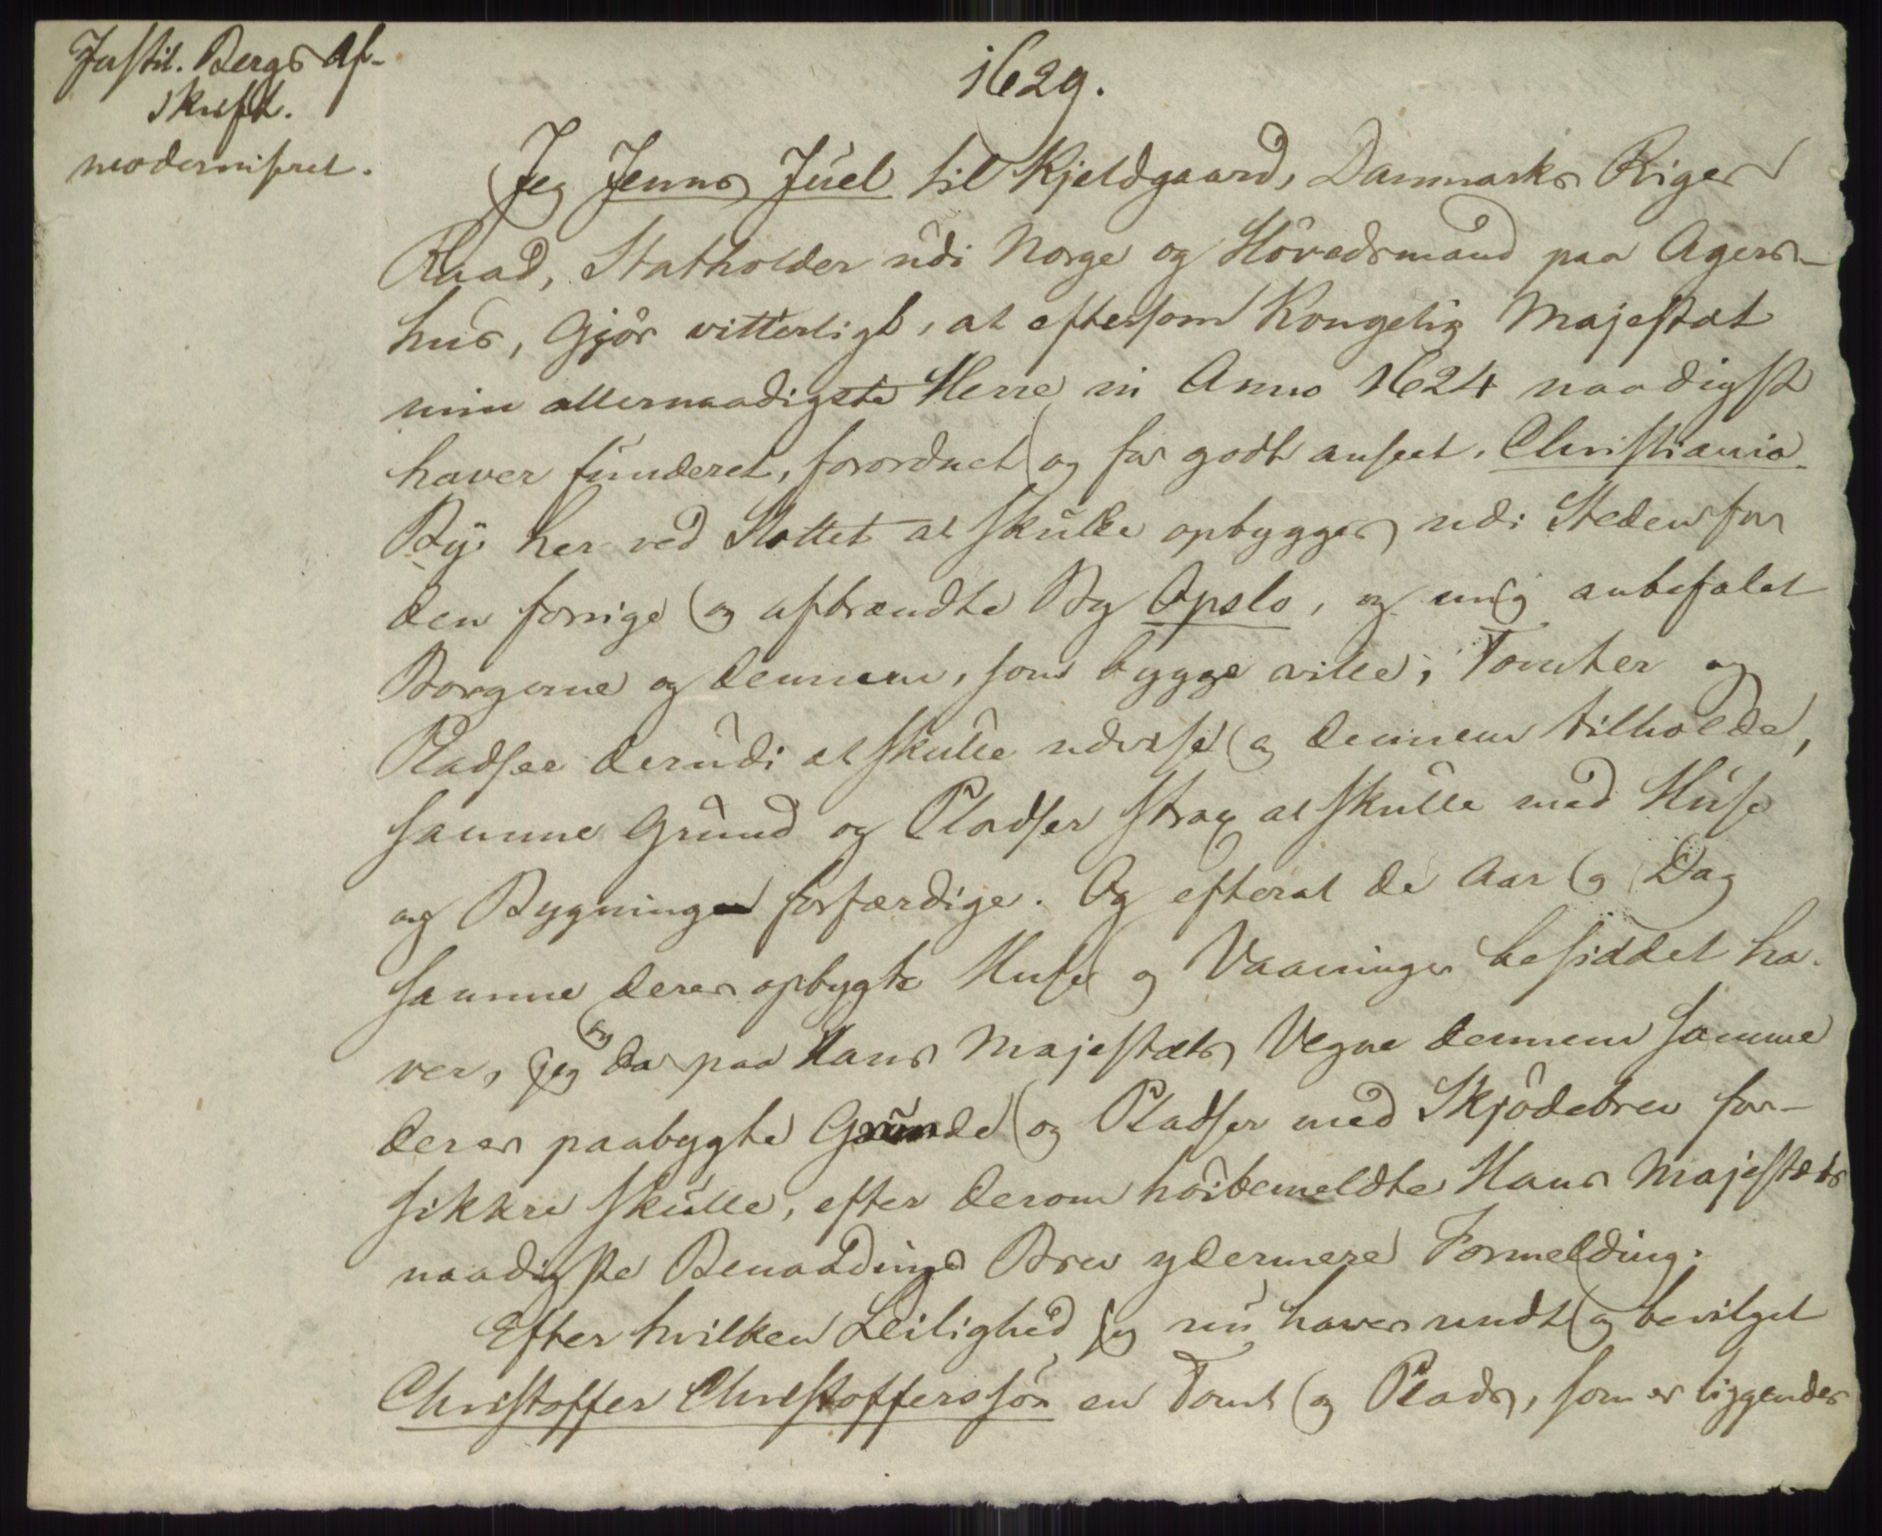 Justit. Bergs Af-
skrift.
modernisret.
1629.
Jeg Jenns Juel til Kjeldgaard, Danmarks Riges
Raad, Statholder udi Norge og Høvedsmand paa Agers-
hus, Gjør vitterligt, at eftersom Kongelig Majestæt
min allernaadigste Herre in Anno 1624 naadigst
haver funderet, forordnet og for godt anseet, Christiania
By her ved Slottet at skulle opbygges udi Steden for
den forrige og afbrændte By Opslo, og mig anbefalet
Borgerne og dennem, som bygge ville, Tomter og
Pladser derudi at skulle udvise og dennem tilholde,
samme Grund og Pladser strax at skulle med Huse
og Bygning forfærdige. Og efterat de Aar og Dag
samme deres opbygte Huse og Vaaninger besiddet ha-
ver, jeg og da paa Hans Majestæts Vegne dennem samme
deres paabygte Grunde og Pladser med Skjødebrev for-
sikkre skulle, efter derom høibemeldte Hans Majestæts
naadigste Benaadings Brev ydermere Formelding.
Efter hvilken Leilighed jeg nu haver undt og bevilget
Christoffer Christofferssøn en Tomt og Plads, som er liggendes